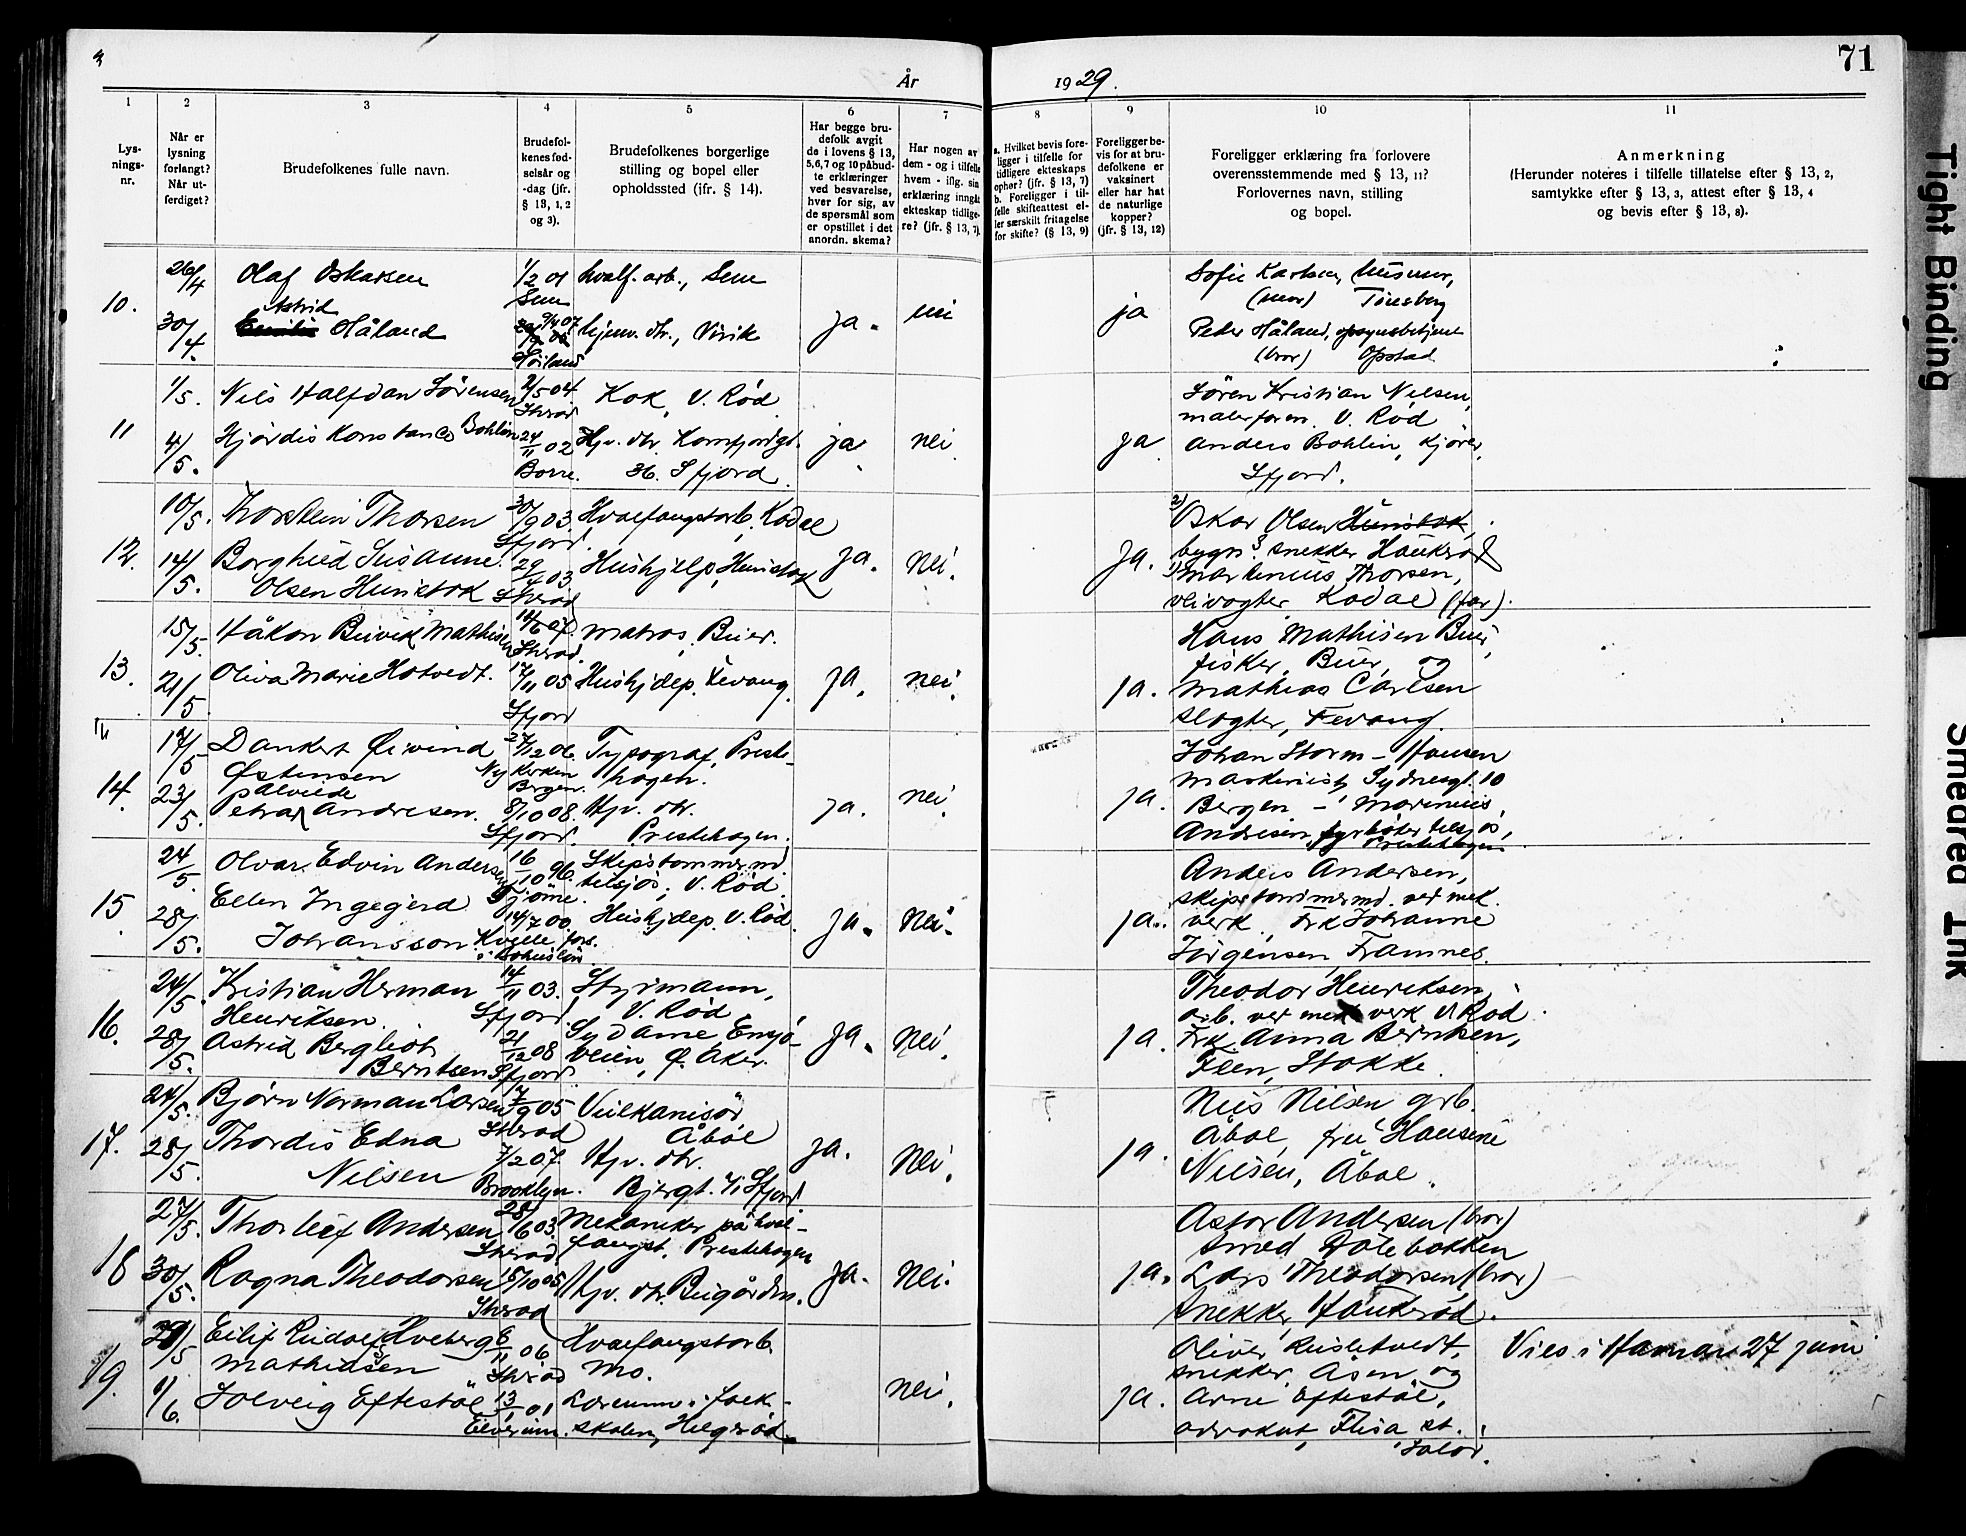 71
År
1929.
1
2
3
4
5
6
7
8
9
10
11
Lys-
nings-
nr.
Når er
lysning
forlangt?
Når ut-
ferdiget?
Brudefolkenes fulle navn.
Brudefol-
kenes fød-
selsår og
-dag (jfr.
§ 13, 1, 2
og 3).
Brudefolkenes borgerlige
stilling og bopel eller
opholdssted (jfr. § 14).
Har begge bru-
defolk avgit
de i lovens § 13,
5, 6, 7 og 10 påbud-
te erklæringer
ved besvarelse,
hver for sig, av
de spørsmål som
er opstillet i det
anordn. skema?
Har nogen av
dem - og i tilfelle
hvem - iflg. sin
erklæring inngåt
ekteskap tidlige-
re? (jfr. § 13, 7).
a. Hvilket bevis fore-
ligger i tilfelle for
tidligere ekteskaps
ophør? (jfr. § 13, 7)
b. Foreligger i til-
felle skifteattest el-
ler særskilt fritagelse
for skifte? (§ 13, 9)
Foreligger be-
vis for at bru-
defolkene er
vaksinert
eller har hat
de naturlige
kopper?
(jfr. § 13, 12)
Foreligger erklæring fra forlovere
overensstemmende med § 13, 11?
Forlovernes navn, stilling
og bopel.
Anmerkning
(Herunder noteres i tilfelle tillatelse efter § 13, 2,
samtykke efter § 13, 3, attest efter § 13, 4
og bevis efter § 13, 8).
10.
26/4
30/4.
Olaf Oskarsen
Astrid
Håland
1/2 01
Sem
9/4 07
hvalf. arb., Sem
hjemv. dtr., Virik
ja.
nei
ja
Sofie Karlsen, husmor,
(mor) Tønsberg
Peder Håland, opsynsbetjent
(bror) Opstad
11
1/5.
4/5.
Nils Halfdan Sørensen
Hjørdis Konstance Bohlin
2/5 04.
Shrad
24/11 02
Borre.
Kok, V. Rød
Hjv. dtr. Kamfjordgt.
36. Sfjord.
ja.
nei.
ja.
Sören Kristian Nilsen,
malerform. V. Rød
Anders Bohlin, kjører,
Sfjord.
12.
10/5.
14/5.
Thorstein Thorsen
Borghild Susanne
Olsen Hunstok
30/9 03.
Sfjord.
29/4 03
Shrad
Hvalfangstarb. Kodal
Hushjelp, Hunstok
ja.
Nei.
ja.
2) Oskar Olsen Hunstok,
bygn.s snekker Haukrød
1) Martinius Thorsen,
veivogter Kodal (far).
13.
15/5.
21/5
Håkon Buvik Mathisen
Oliva Marie Hotvedt.
Shrad.
17/11 05
Sfjord
matros, Buer.
Hushjelp. Fevang.
ja.
nei.
ja.
Hans Mathisen Buer,
fisker, Buer, og
Mathias Carlsen
slagter, Fevang.
14.
17/5
23/5.
Dankert Øivind
Østensen
Petra Alvilde Andresen.
27/12 06
Nykirken
Bergen.
8/10 08.
Sfjord.
Typograf, Preste-
hagen.
Hjv. dtr.
Prestehagen.
ja.
nei.
ja.
Johan Storm-Hansen
maskinist, Sydnesgt. 10
Bergen - Marinius
Andresen, fyrbøter tilsjøs,
Prestehagen
15.
24/5.
28/5.
Olvar Edvin Andersen
Ellen Ingegerd
Johansson
16/10 96.
Tjöme.
14/7 00.
Kville fors.
i Bohuslän
Skipstømmermd.
tilsjøs, V. Rød.
Hushjelp. V. Rød.
ja.
Nei.
ja.
Anders Andersen,
skipstømmermd. ved mek.
verk, Frk Johanne
Jørgensen, Framnes.
16.
24/5.
28/5.
Kristian Herman
Henriksen.
Astrid Bergliot
Berntsen
14/11 03.
Sfjord.
21/12 08
Sfjord.
Styrmann,
V. Rød
Sydame, Ensjø-
veien, Ø. Aker.
ja.
Nei.
ja.
Theodor Henriksen,
arb. ved mek verk V. Rød.
Frk. Anna Berntsen,
Feen, Stokke.
17.
24/5.
28/5.
Bjørn Norman Larsen
Thordis Edna
Nilsen
7/9 05
Shrad
7/2 07.
Brooklyn.
Vulkanisør
Åbøl
Hjv. dtr.
Bjergt. 4 Sfjord.
ja.
Nei.
ja.
Nils Nilsen, grb.
Åbøl, fru Hansine
Nilsen, Åbøl.
18
27/5.
30/5.
Thorleif Andersen
Ragna Theodorsen
28/6 03.
Shrad.
15/10 05
Shrad
Mekaniker på hval-
fangst. Prestehagen
Hjv. dtr. Bugården.
ja.
Nei.
ja.
Astor Andersen (bror)
smed Dølebakken
Lars Theodorsen (bror)
snekker, Haukrød.
19.
29/5
1/6.
Eilif Rudolf Hveberg
Mathiesen
Solveig Eftestøl
6/11 06
Shrad
13/1 01
Elverum.
Hvalfangstarb.
Mo.
Lærerinne i folk-
skolen, Helgerød.
Nei.
ja.
Oliver Rusletvedt,
snekker, Åsen og
Arne Eftestøl,
advokat, Flisa st.
Solør.
Vies i Hamar 27 juni
Tight Binding
Smeared Ink